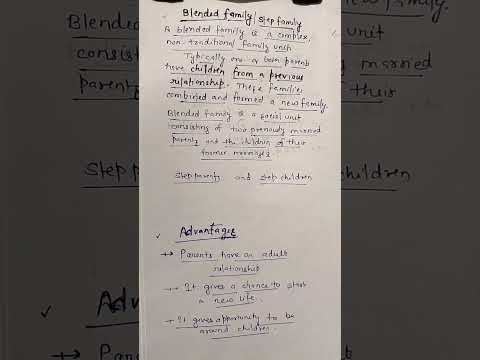 Blended family | Step family
A blended family is a complex,
non-traditional family unit.
Typically one or both parents
have children from a previous
relationship. These families
combined and formed a new family.
Blended family is a social unit
consisting of two previously married
parents and the children of their
former marriages
Step parents and step children
Advantages
→ Parents have an adult
relationship
→ It gives a chance to start
a new life.
→ It gives opportunity to be
around children.